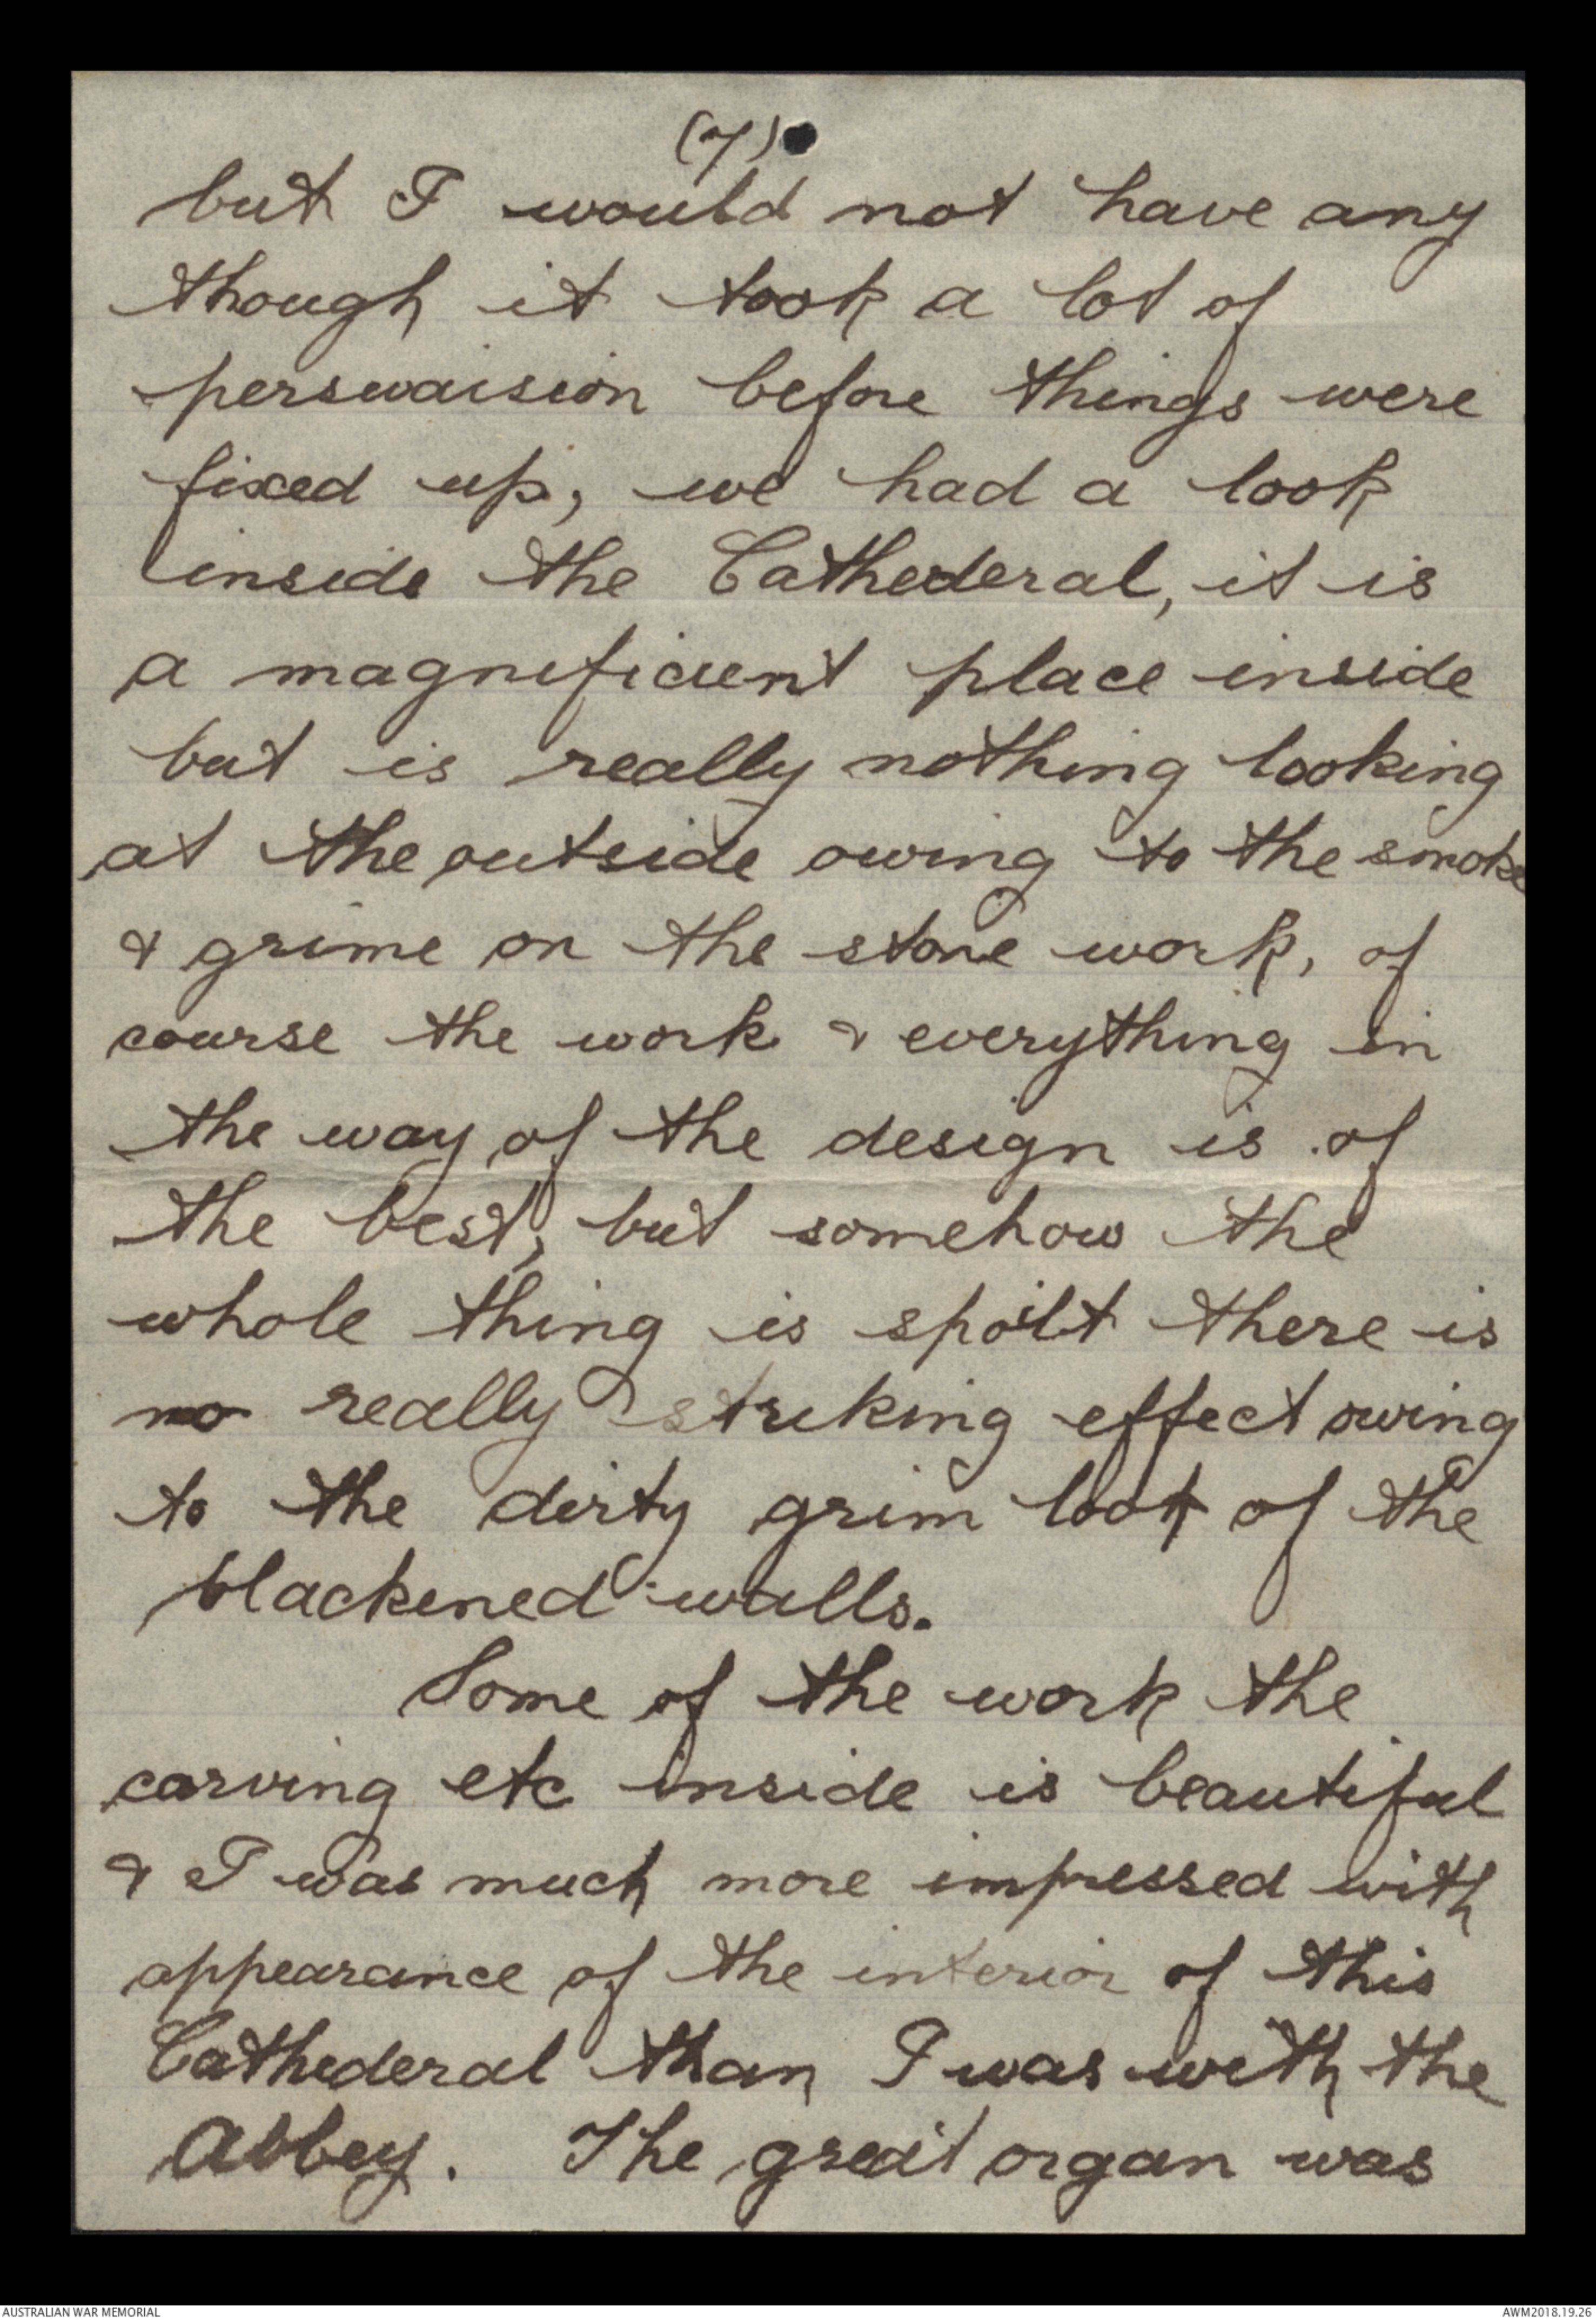 (7)
but I would not have any
though it took a lot of
perswaision before things were
fixed up, we had a look
inside the Cathederal, it is
a magnificient place inside
but is really nothing looking
at the outside owing to the smoke
& grime on the stone work, of
course the work & everything in
the way of the design is of
the best, but somehow the
whole thing is spoilt there is
no really striking effect owing
to the dirty grim look of the
blackened walls.
Some of the work the
carving etc inside is beautiful
& I was much more impressed with
appearance of the interior of this
Cathederal than I was with the
Abbey. The great organ was
AUSTRALIAN WAR MEMORIAL
AWM2018.19.26